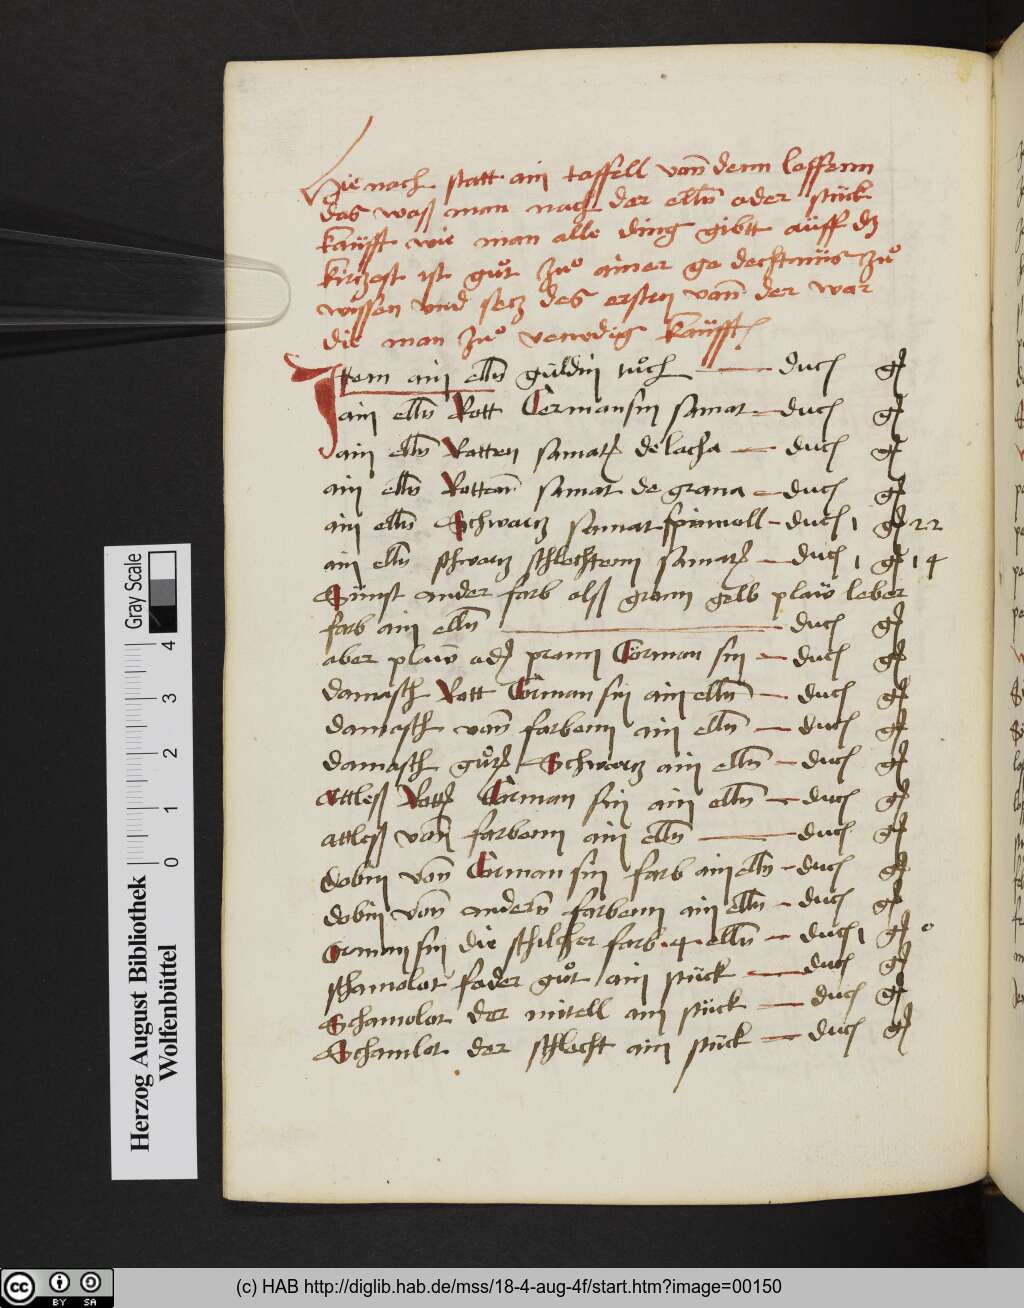 Hie nach statt ain taffell vann denn laffenn
das waß man nach der elln̄ oder stück
kaüfft wie man alle ding gibtt aüff dz
kürzest ist gůt zuͦ ainer ge dechtnüs zuͦ
wissen vnd secz des ersten vann der war
die man zuͦ venedig kaüfft
Item ain elln̄ güldin tuͦch — duc g
ain elln̄ Rott Cermansin samat — duc g
ain elln̄ Rotten samat de lacha — duc g
ain elln̄ Rottenn samat de grana — duc g
ain elln̄ Schwarcz samat — duc 1 g 22
ain elln̄ schwarcz schlechtenn samat — duc 1 g 14
Sünst ander farb alß grann gelb plaw leber
farb ain elln̄ — duc g
aber plaw od prann Carman sin — duc g
damasch Rott Carman sin ain elln̄ — duc g
damasch vann farbenn ain elln̄ — duc g
damasch guͦt Schwarcz ain elln̄ — duc g
attleß Rott Carman sin ain elln̄ — duc g
attleß vann farbenn ain elln̄ — duc g
dobin vonn Carman sin farb ain elln̄ — duc g
dobin vonn andern farbenn ain elln̄ — duc g
Crman sin die schilcher farb 4 elln̄ — duc 1 g 0
schamolot fader guͦt ain stück — duc g
Schamolot der mitell ain stück — duc g
Schamlot der schlecht ain stück — duc g
Herzog August Bibliothek
Wolfenbüttel
Gray Scale
0 1 2 3 4
cc BY SA
(c) HAB http://diglib.hab.de/mss/18-4-aug-4f/start.htm?image=00150